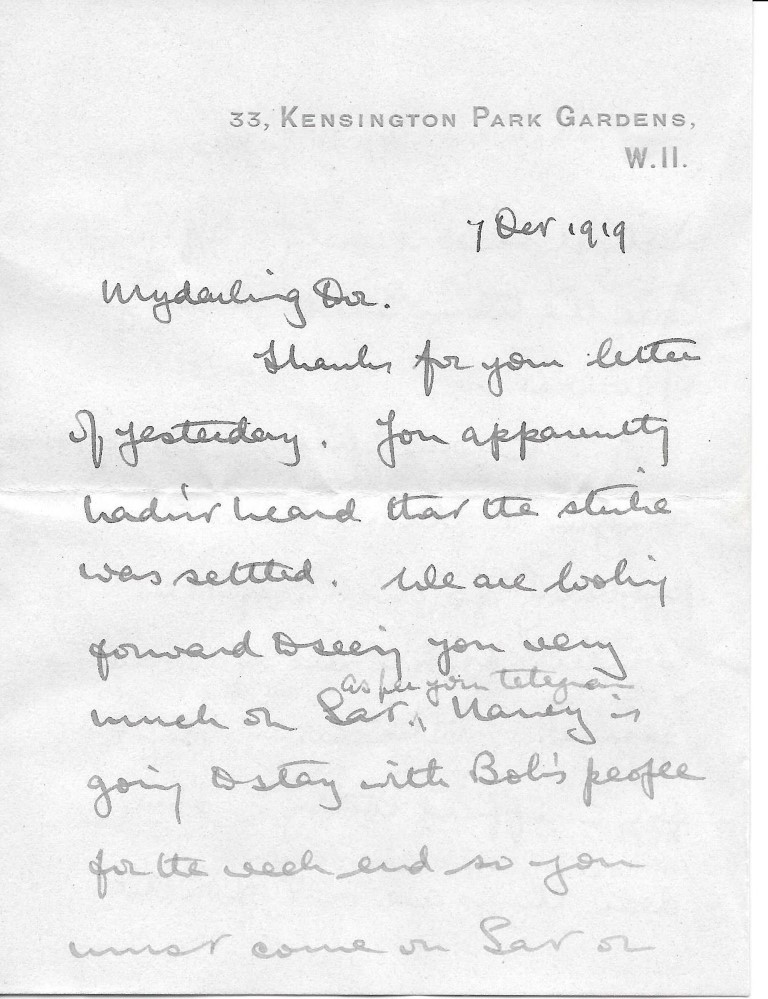 33, KENSINGTON PARK GARDENS,
W.11.
7 Oct 1919
My darling Dor.
Thanks for your letter
of yesterday. You apparently
hadn't heard that the strike
was settled. We are looking
forward to seeing you very
as per your telegram
much on Sat. Nancy is
going to stay with Bob's people
for the week end so you
must come on Sat or